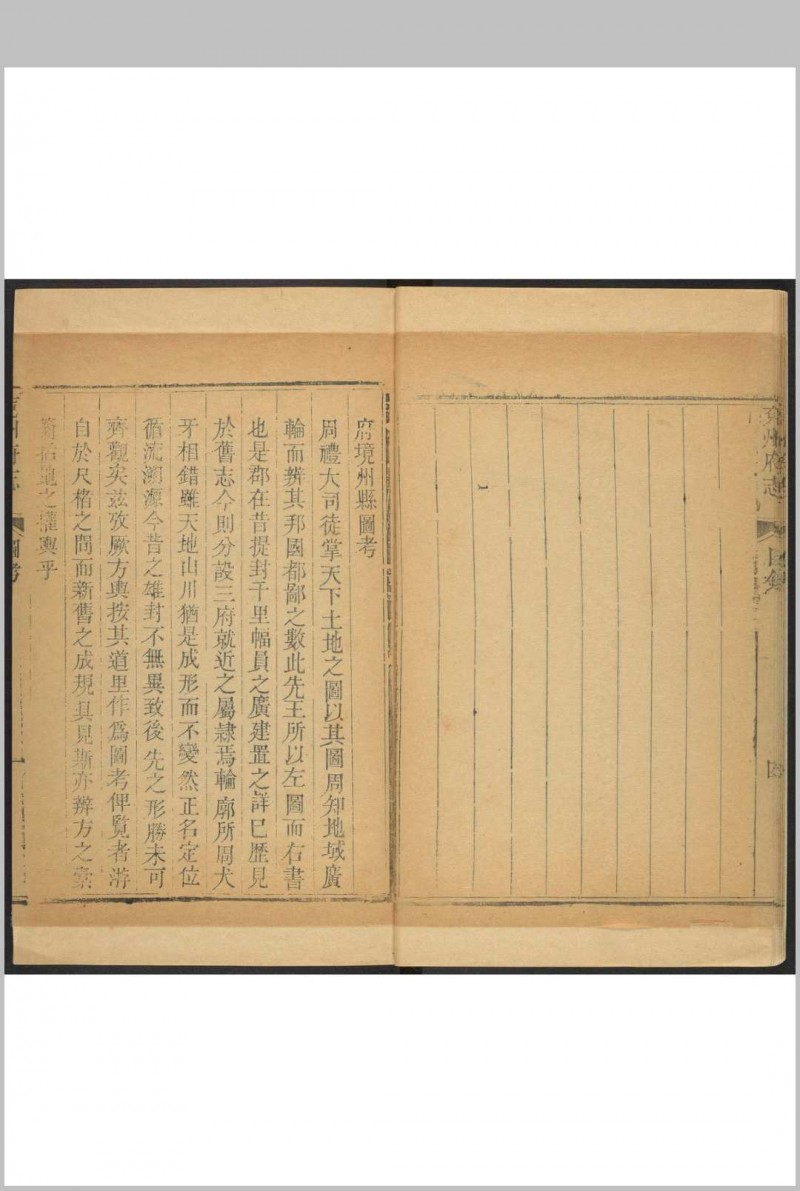 兗州府志
目錄
府境州縣圖考
周禮大司徒掌天下土地之圖以其圖周知地域廣
輪而辨其邦國都鄙之數此先王所以左圖而右書
也是郡在昔提封千里幅員之廣建置之詳已歷見
於舊志今則分設三府就近之屬隸焉輪廓所周犬
牙相錯雖天地山川猶是成形而不變然正名定位
循流溯源今昔之雄封不無異致後先之形勝未可
齊觀矣茲攷厥方輿按其道里作爲圖考俾覽者游
自於尺楮之間而新舊之成規具見斯亦辨方之
地之權輿乎
州府志
圖考